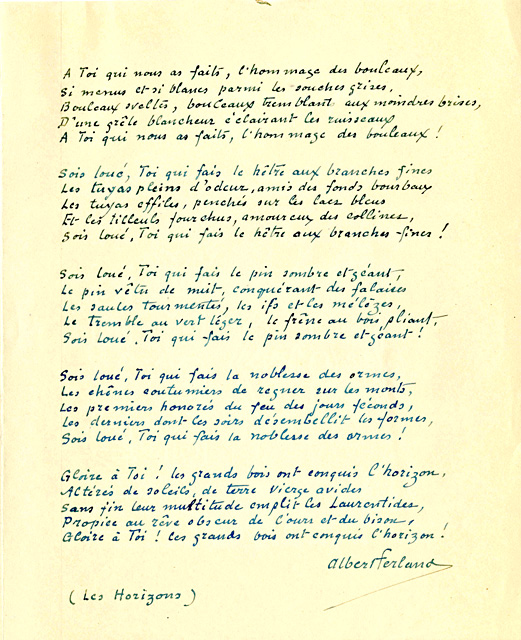 A Toi qui nous as faits, l'hommage des bouleaux,
Si menus et si blancs parmi les souches grises,
Bouleaux sveltes, bouleaux tremblant aux moindres brises,
D'une grêle blancheur éclairant les ruisseaux
A Toi qui nous as faits, l'hommage des bouleaux !
Sois loué, Toi qui fais le hêtre aux branches fines
Les tuyas pleins d'odeur, amis des fonds bourbeux
Les tuyas effilés, penchés sur les lacs bleus
Et les tilleuls fourchus, amoureux des collines,
Sois loué, Toi qui fais le hêtre aux branches fines !
Sois loué, Toi qui fais le pin sombre et géant,
Le pin vêtu de nuit, conquérant des falaises
Les saules tourmentés, les ifs et les mélèzes,
Le tremble au vert léger, le frêne au bois pliant,
Sois loué, Toi qui fais le pin sombre et géant !
Sois loué, Toi qui fais la noblesse des ormes,
Les chênes coutumiers de regner sur les monts,
Les premiers honorés du feu des jours féconds,
Les derniers dont les soirs désembellit les formes,
Sois loué, Toi qui fais la noblesse des ormes !
Gloire à Toi ! les grands bois ont conquis l'horizon,
Altérés de soleils, de terre vierge avides
Sans fin leur multitude emplit les Laurentides,
Propice au rêve obscur de l'ours et du bison,
Gloire à Toi ! les grands bois ont conquis l'horizon !
Albert Ferland
(Les Horizons)